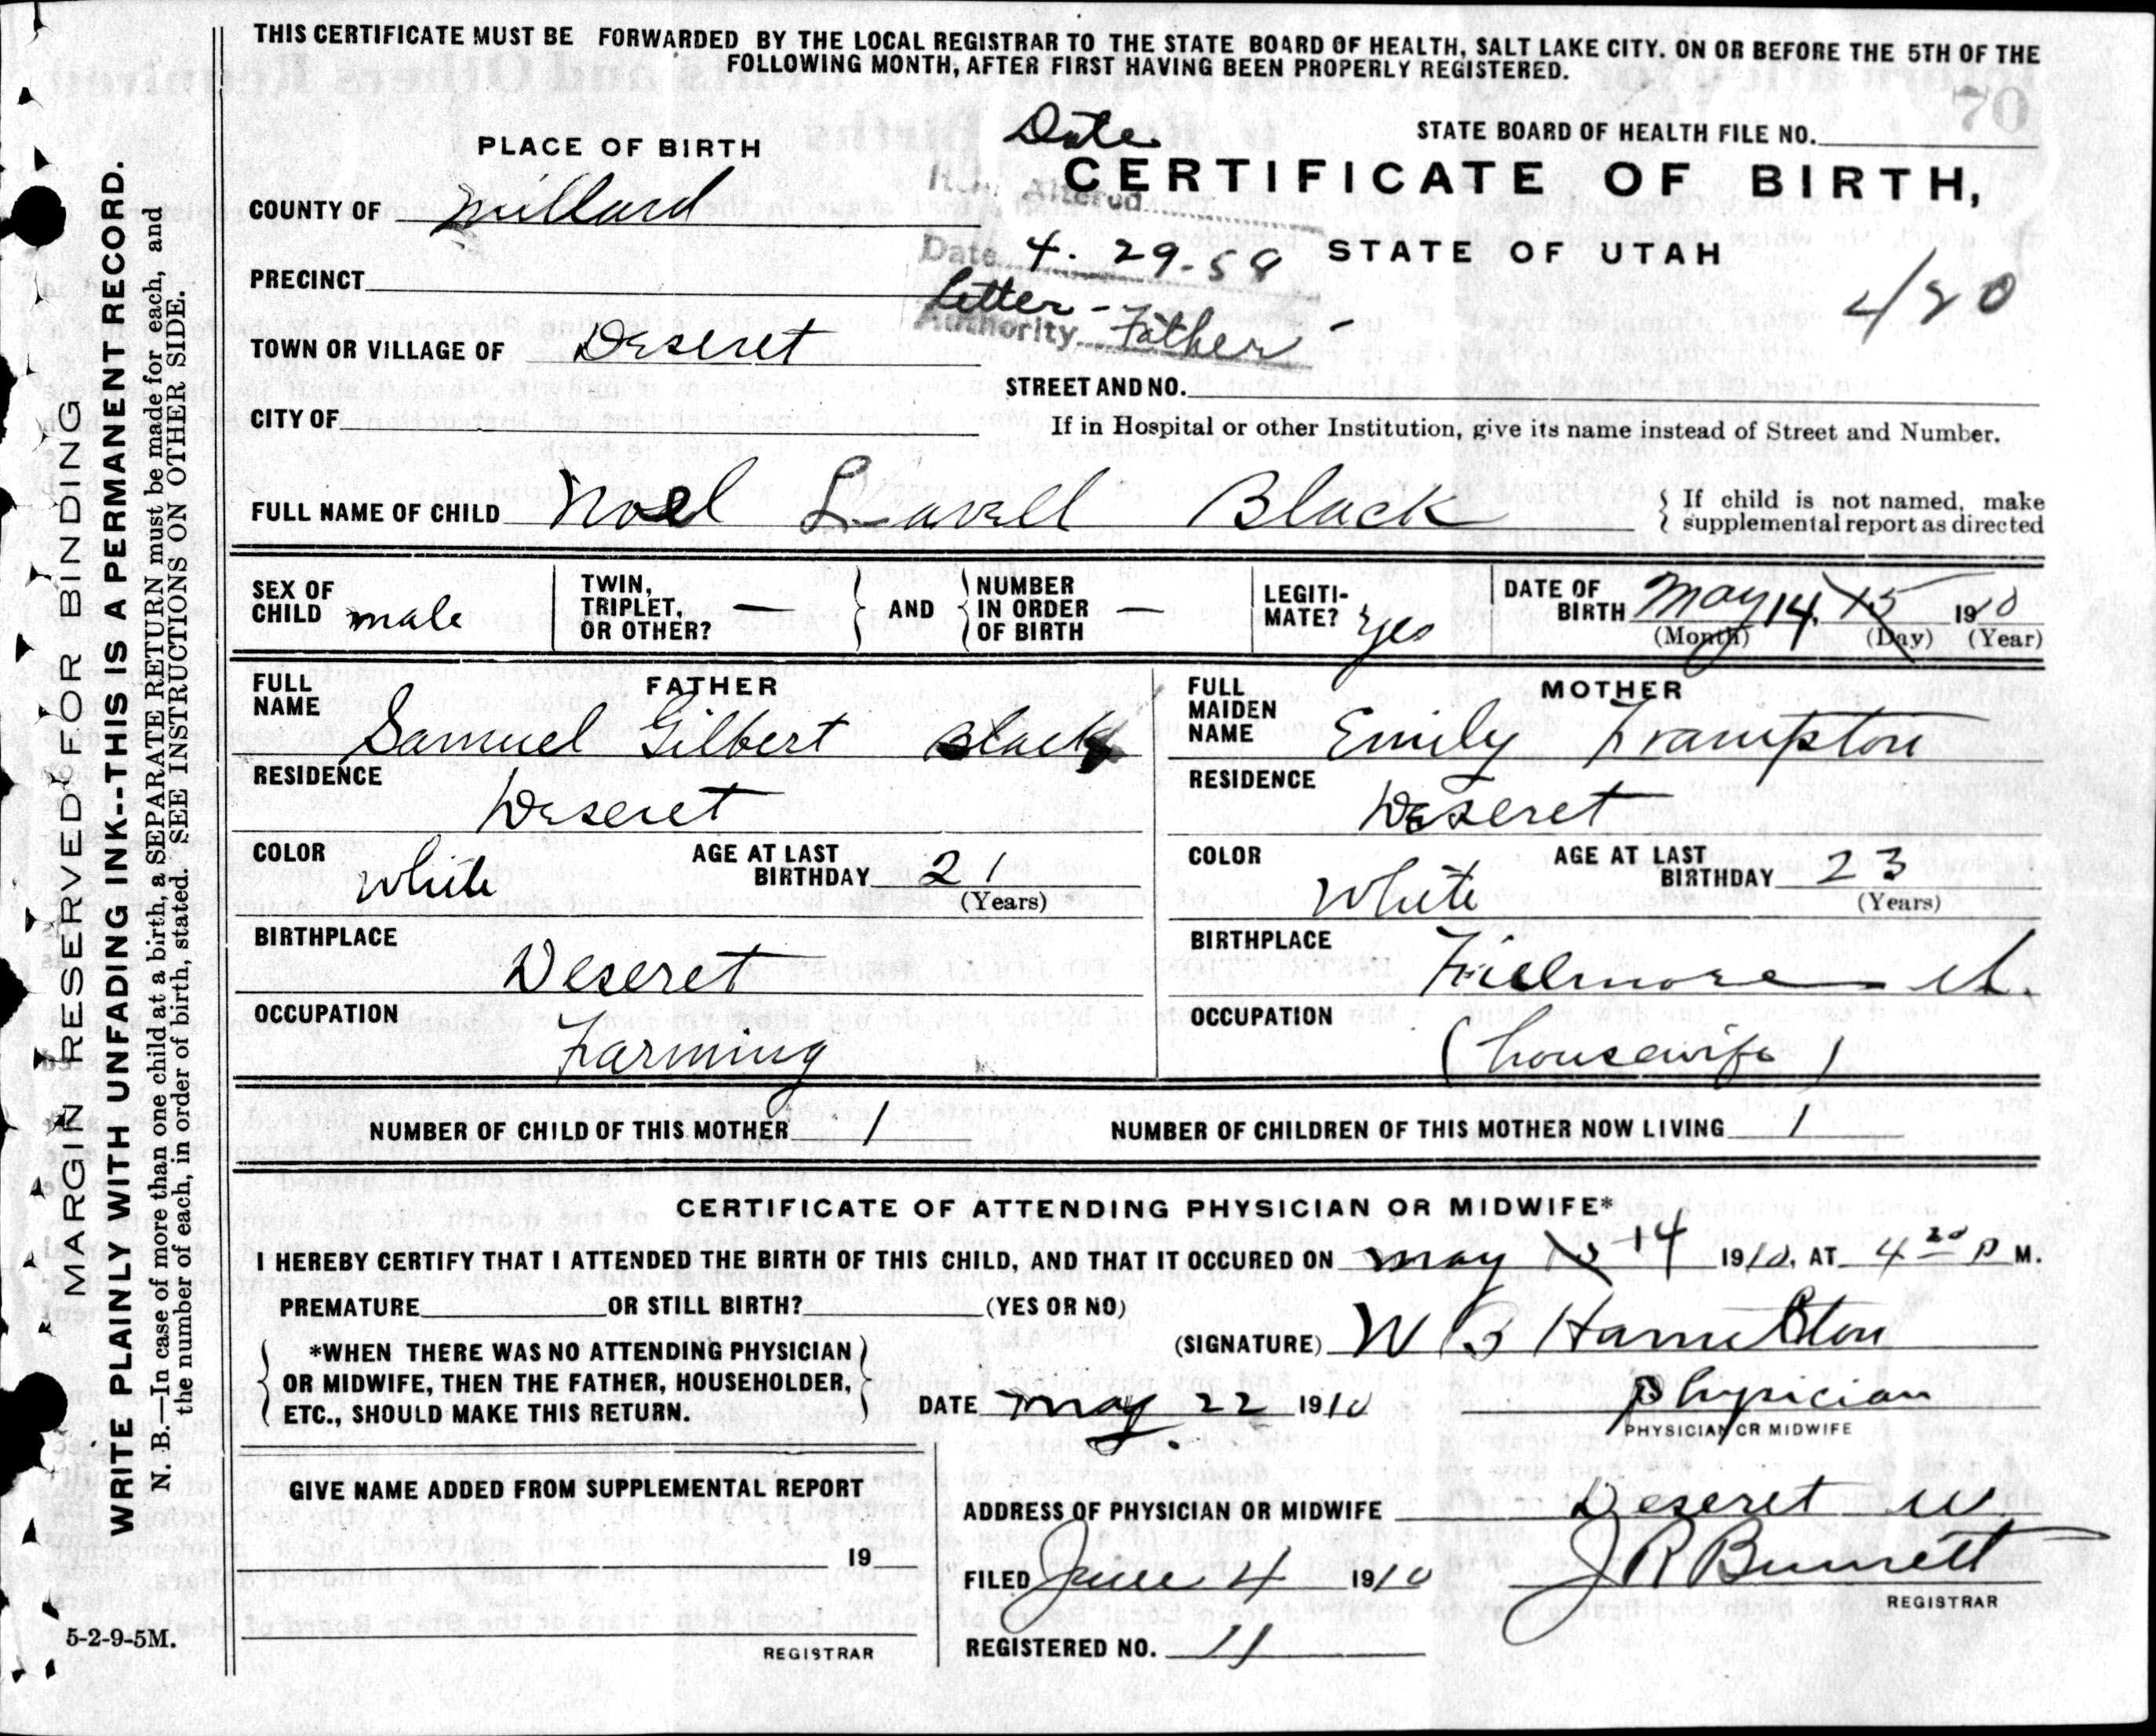 THIS CERTIFICATE MUST BE FORWARDED BY THE LOCAL REGISTRAR TO THE STATE BOARD OF HEALTH, SALT LAKE CITY. ON OR BEFORE THE 5TH OF THE
FOLLOWING MONTH, AFTER FIRST HAVING BEEN PROPERLY REGISTERED.
70
STATE BOARD OF HEALTH FILE NO.
Date
PLACE OF BIRTH
CERTIFICATE OF BIRTH,
Altered
COUNTY OF Millard
STATE OF UTAH
Date 4. 29-58
480
PRECINCT
Letter - Father -
Authority
TOWN OR VILLAGE OF Deseret
STREET AND NO.
CITY OF
If in Hospital or other Institution, give its name instead of Street and Number.
FULL NAME OF CHILD Noel Lavell Black
If child is not named, make
supplemental report as directed
SEX OF CHILD male
TWIN, TRIPLET, OR OTHER? —
AND
NUMBER IN ORDER OF BIRTH —
LEGITI-MATE? yes
DATE OF BIRTH May 14, 15 1910
(Month) (Day) (Year)
FATHER
FULL NAME Samuel Gilbert Black
RESIDENCE Deseret
COLOR White
AGE AT LAST BIRTHDAY 21
(Years)
BIRTHPLACE Deseret
OCCUPATION Farming
MOTHER
FULL MAIDEN NAME Emily Frampton
RESIDENCE Deseret
COLOR White
AGE AT LAST BIRTHDAY 23
(Years)
BIRTHPLACE Fillmore Ut.
OCCUPATION (housewife)
NUMBER OF CHILD OF THIS MOTHER 1
NUMBER OF CHILDREN OF THIS MOTHER NOW LIVING 1
CERTIFICATE OF ATTENDING PHYSICIAN OR MIDWIFE*
I HEREBY CERTIFY THAT I ATTENDED THE BIRTH OF THIS CHILD, AND THAT IT OCCURED ON May 15 14 1910, AT 4 20 P M.
PREMATURE OR STILL BIRTH? (YES OR NO)
(SIGNATURE) W B Hamilton
*WHEN THERE WAS NO ATTENDING PHYSICIAN
OR MIDWIFE, THEN THE FATHER, HOUSEHOLDER,
ETC., SHOULD MAKE THIS RETURN.
DATE May 22 1910
Physician
PHYSICIAN OR MIDWIFE
GIVE NAME ADDED FROM SUPPLEMENTAL REPORT
19
REGISTRAR
ADDRESS OF PHYSICIAN OR MIDWIFE Deseret U
FILED June 4 1910
J R Bunnett
REGISTRAR
REGISTERED NO. 11
MARGIN RESERVED FOR BINDING
WRITE PLAINLY WITH UNFADING INK--THIS IS A PERMANENT RECORD.
N. B.—In case of more than one child at a birth, a SEPARATE RETURN must be made for each, and
the number of each, in order of birth, stated. SEE INSTRUCTIONS ON OTHER SIDE.
5-2-9-5M.